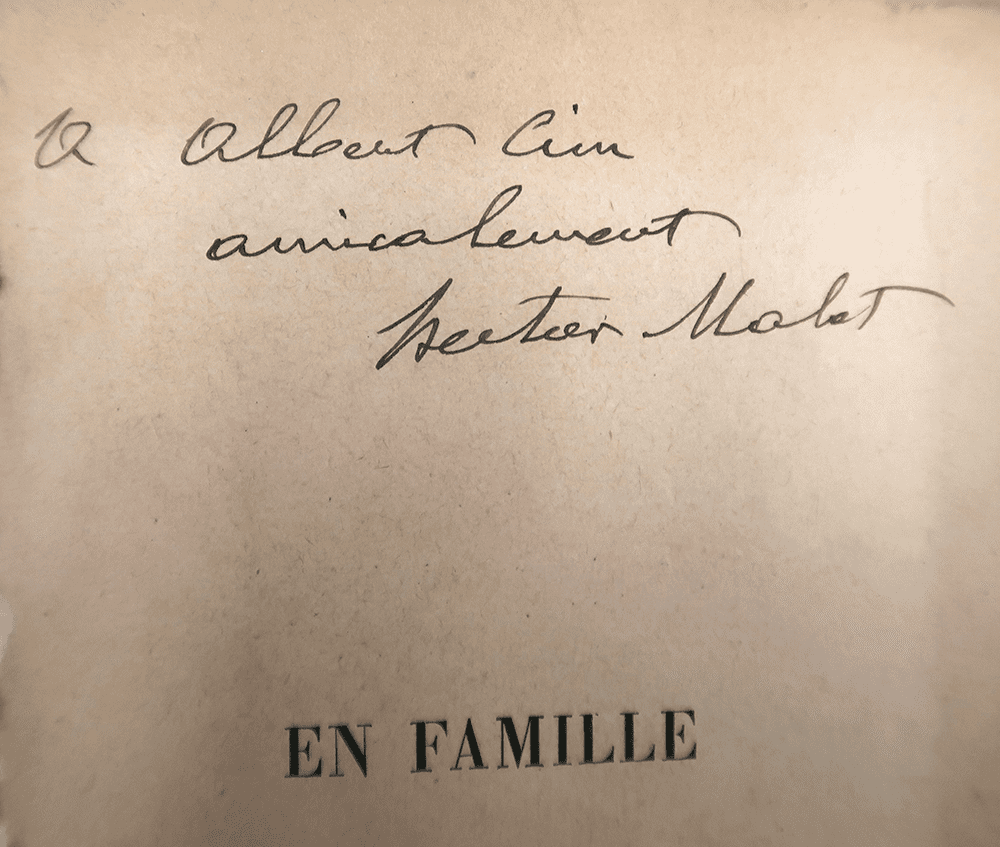 A Albert Cim
amicalement
Hector Malot
EN FAMILLE